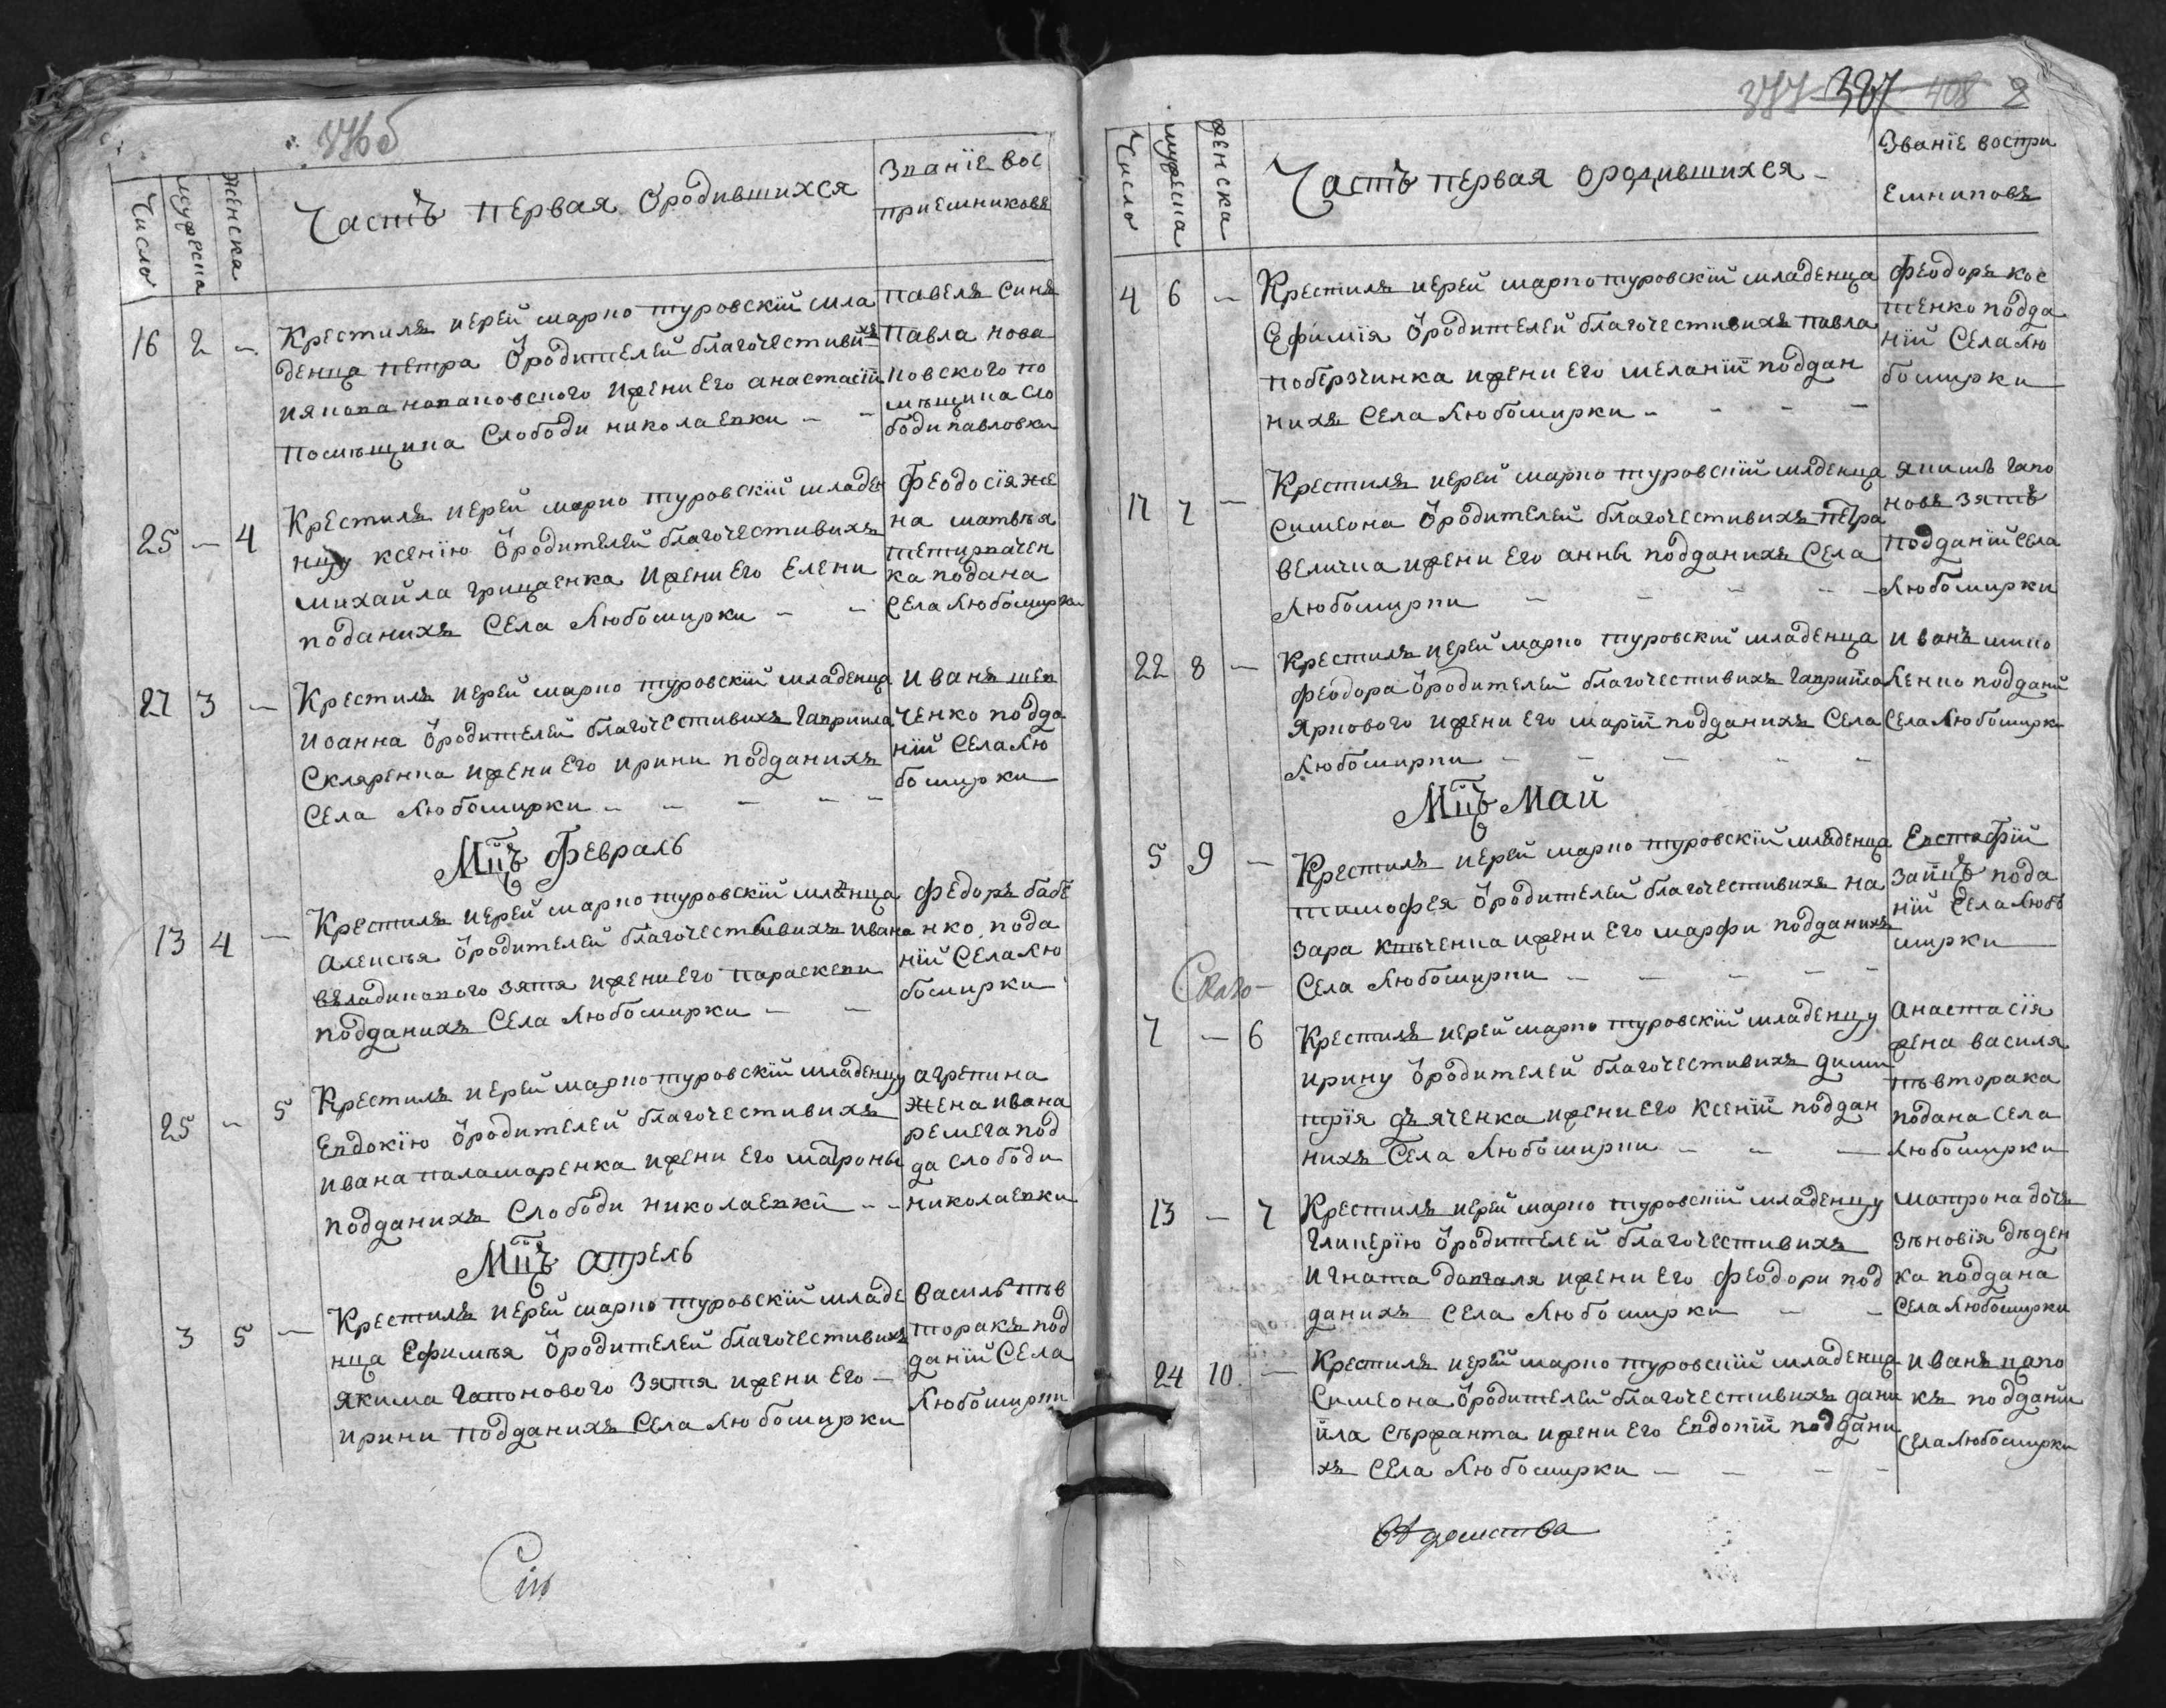 376б
Число
мужеска
женска
Часть первая Ородившихся
Званїе вос
приемниковъ
16 2 –
Крестилъ иерей марко туровскїй мла
денца петра Ѿродителей благочестивихъ
помѣщика Слободи николаевки – –
Павелъ Синъ
Павла нова
ковского по
мѣщика Сло
боди павловки
25 – 4
Крестилъ иерей марко туровскїй младе
ницу ксенїю Ѿродителей благочестивихъ
михайла грицаенка ижени Его Елени
поданихъ Села Любомирки – –
Феодосїя же
на матвѣя
ка подана
Села Любомирки
27 3 –
Крестилъ иерей марко туровскїй младенца
Иоанна Ѿродителей благочестивихъ гавриила
Скляренка ижени Его ирини подданихъ
Села Любомирки – – – – –
Иванъ шев
ченко подда
нїй Села Лю
бомирки
Мцъ Февраль
13 4 –
Крестилъ иерей марко туровскїй младенца
алексѣя Ѿродителей благочествивихъ ивана
зятя ижени Его параскеви
подданихъ Села Любомирки – –
Федоръ бабе
нко пода
нїй Села Лю
бомирки
25 – 5
Крестилъ иерей марко туровскїй младенцу
Евдокїю Ѿродителей благочестивихъ
ивана паламаренка ижени Его матроны
подданихъ Слободи николаевки – –
агрепина
жена ивана
ремега под
да Слободи
николаевки
Мцъ апрель
3 5 –
Крестилъ иерей марко туровскїй младе
нца Ефимѣя Ѿродителей благочестивихъ
якима гапонового зятя ижени Его –
ирини подданихъ Села Любомирки
Василь пѣв
торакъ под
данїй Села
Любомирки
377 387 408 2
Число
мужеска
женска
Часть первая ородившихся –
Званїе воспри
Емниковъ
4 6 –
Крестилъ иерей марко туровскїй младенца
Ефимїя Ѿродителей благочестивихъ павла
поберэчника ижени Его меланїй поддан
нихъ Села Любомирки – – – –
Феодоръ кос
тенко подда
нїй Села Лю
бомирки
17 7 –
Крестилъ иерей марко туровскїй мляденца
симеона Ѿродителей благочестивихъ петра
величка ижени Его анны подданихъ Села
Любомирки – – – – –
якимъ гапо
новъ зять
подданїй Села
Любомирки
22 8 –
Крестилъ иерей марко туровскїй младенца
феодора Ѿродителей благочестивихъ гаврийла
яркового ижени Его марїй подданихъ Села
Любомирки – – – – –
Иванъ шипо
ленко подданїй
Села Любомирк
Мцъ Май
5 9 –
Крестилъ иерей марко туровскїй младенца
тимофея Ѿродителей благочестивихъ на
зара ижени Его марфи подданихъ
Села Любомирки – – – – –
Евстафїй
заицъ пода
нїй Села Любо
мирки
7 – 6
Крестилъ иерей марко туровскїй младенцу
ирину Ѿродителей благочестивихъ дими
трїя дъяченка ижени Его ксенїй поддан
нихъ Села Любомирки – – –
анастасїя
жена василя
пѣвторака
подана Села
Любомирки
13 – 7
Крестилъ иерей марко туровскїй младенцу
гликерїю Ѿродителей благочестивихъ
игната довгаля ижени Его феодори под
данихъ Села Любомирки – –
матрона дочъ
зѣновїя дѣден
ка поддана
Села Любомирки
24 10. –
Крестилъ иерей марко туровскїй младенца
Симеона Ѿродителей благочестивихъ дани
ила сержанта ижени Его Евдокїй поддани
хъ Села Любомирки – – – –
иванъ цапо
къ подданїй
Села Любомирки